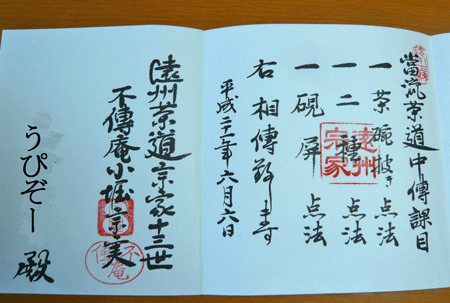 當流茶道中傳課目
一 茶碗披き 点法
一 二種 点法
一 硯屏 点法
右 相傳致し寿
平成二十二年六月六日
遠州茶道宗家十三世
不傳庵小堀宗実
うぴぞー 殿
遠州宗家
不傳庵